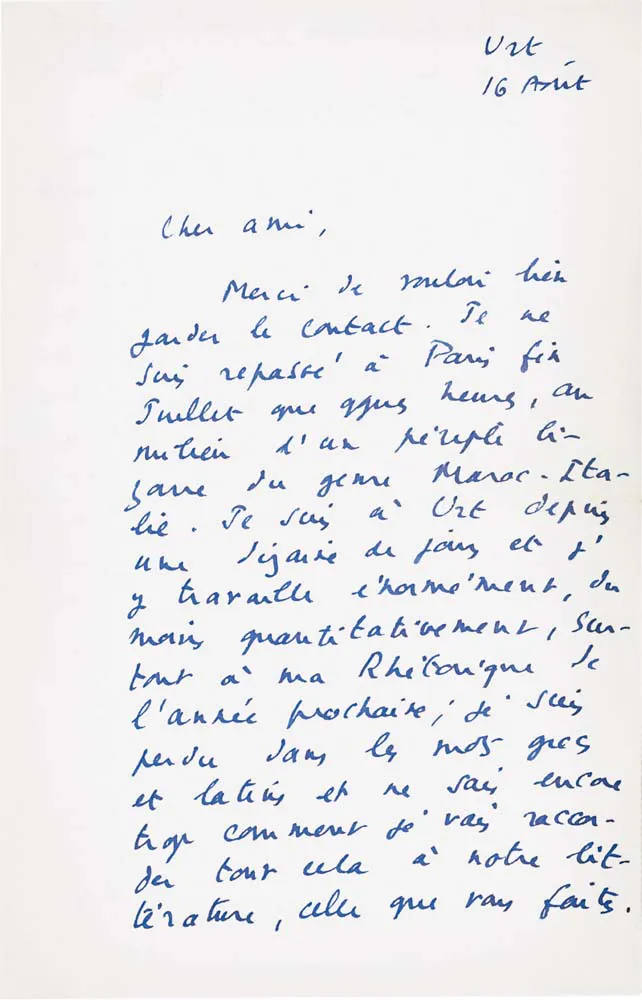 Urt
16 Août
Cher ami,
Merci de vouloir bien
garder le contact. Je ne
suis repassé à Paris fin
Juillet que qques heures, au
milieu d'un périple bi-
zarre du genre Maroc-Ita-
lie. Je suis à Urt depuis
une dizaine de jours et j'
y travaille énormément, du
moins quantitativement, sur-
tout à ma Rhétorique de
l'année prochaine; je suis
perdu dans les mots grecs
et latins et ne sais encore
trop comment je vais raccor-
der tout cela à notre lit-
térature, celle que vous faites.